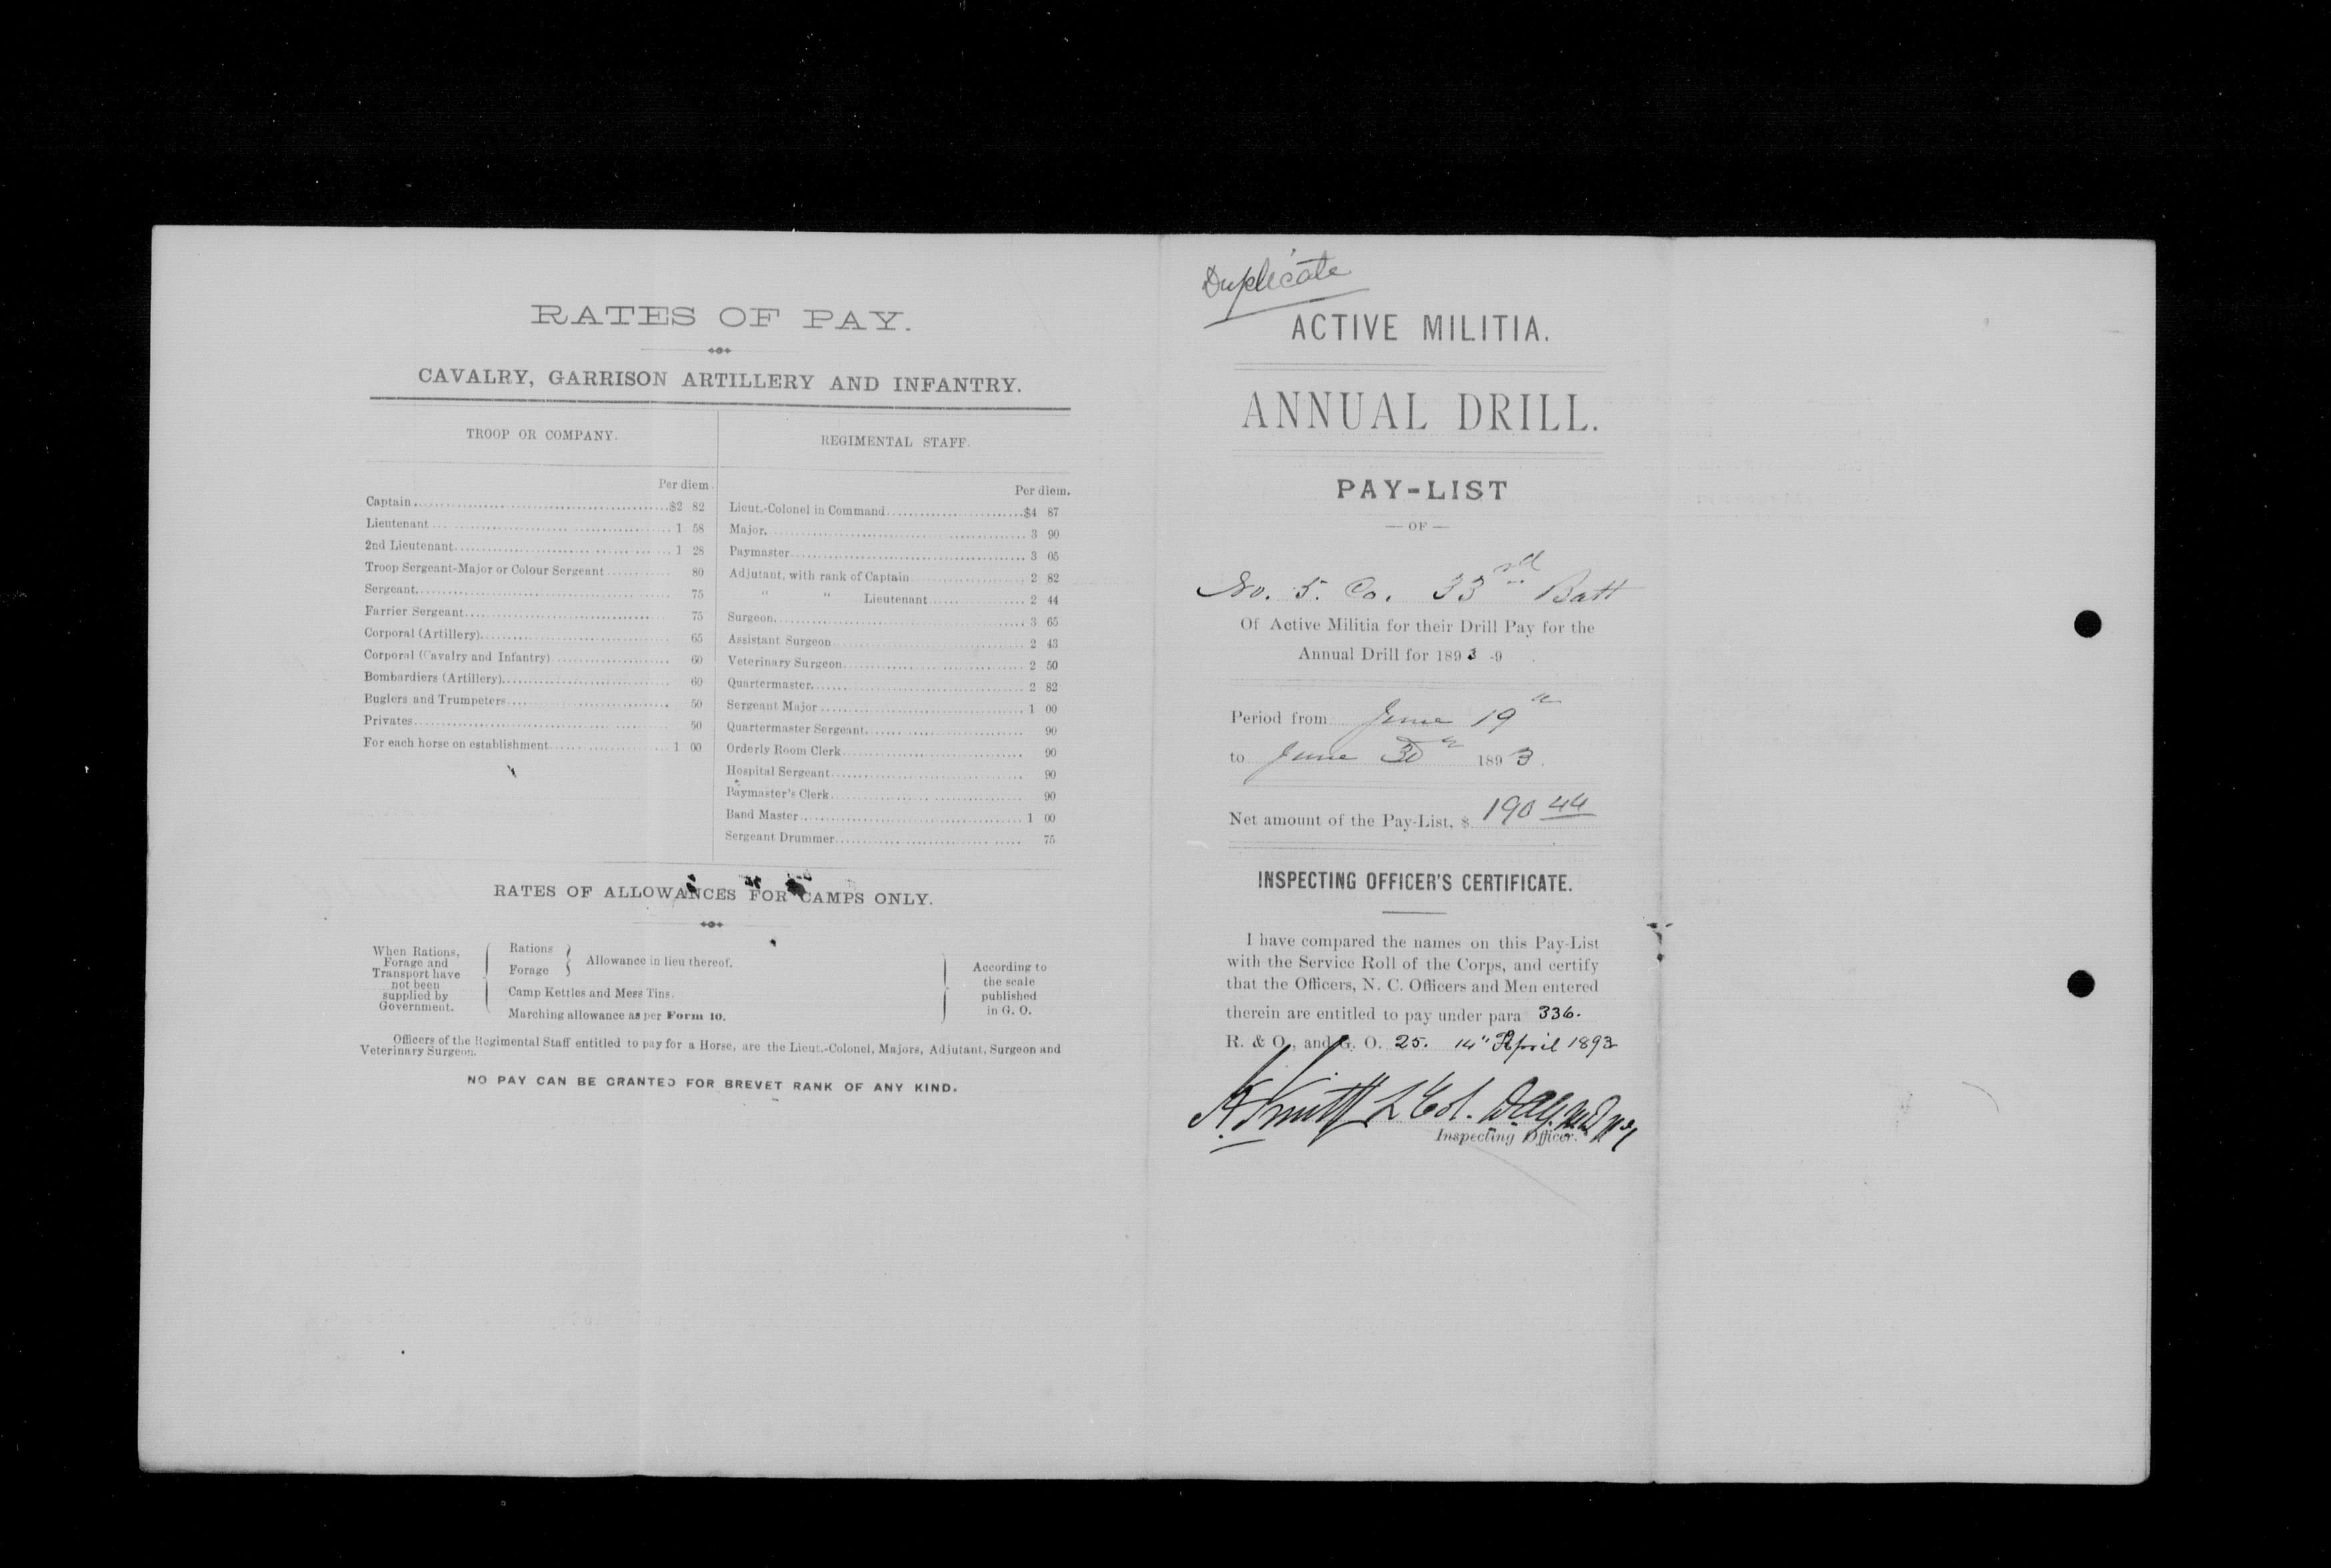 RATES OF PAY.
CAVALRY, GARRISON ARTILLERY AND INFANTRY.
TROOP OR COMPANY.
Per diem.
Captain $2 82
Lieutenant 1 58
2nd Lieutenant 1 28
Troop Sergeant-Major or Colour Sergeant 80
Sergeant 75
Farrier Sergeant 75
Corporal (Artillery) 65
Corporal (Cavalry and Infantry) 60
Bombardiers (Artillery) 60
Buglers and Trumpeters 50
Privates 50
For each horse on establishment 1 00
REGIMENTAL STAFF.
Per diem.
Lieut.-Colonel in Command $4 87
Major 3 90
Paymaster 3 05
Adjutant, with rank of Captain 2 82
" " Lieutenant 2 44
Surgeon 3 65
Assistant Surgeon 2 43
Veterinary Surgeon 2 50
Quartermaster 2 82
Sergeant Major 1 00
Quartermaster Sergeant 90
Orderly Room Clerk 90
Hospital Sergeant 90
Paymaster's Clerk 90
Band Master 1 00
Sergeant Drummer 75
RATES OF ALLOWANCES FOR CAMPS ONLY.
When Rations,
Forage and
Transport have
not been
supplied by
Government.
Rations
Forage
Allowance in lieu thereof.
Camp Kettles and Mess Tins.
Marching allowance as per Form 10.
According to
the scale
published
in G. O.
Officers of the Regimental Staff entitled to pay for a Horse, are the Lieut.-Colonel, Majors, Adjutant, Surgeon and
Veterinary Surgeon.
NO PAY CAN BE GRANTED FOR BREVET RANK OF ANY KIND.
Duplicate
ACTIVE MILITIA.
ANNUAL DRILL.
PAY-LIST
— OF —
No. 5. Co. 33rd Batt
Of Active Militia for their Drill Pay for the
Annual Drill for 1893-9
Period from June 19th
to June 30th 1893.
Net amount of the Pay-List, $ 190 44
INSPECTING OFFICER'S CERTIFICATE.
I have compared the names on this Pay-List
with the Service Roll of the Corps, and certify
that the Officers, N. C. Officers and Men entered
therein are entitled to pay under para 336.
R. & O., and G. O. 25. 14" April 1893
Smith L Col. D.A.G.
Inspecting Officer.